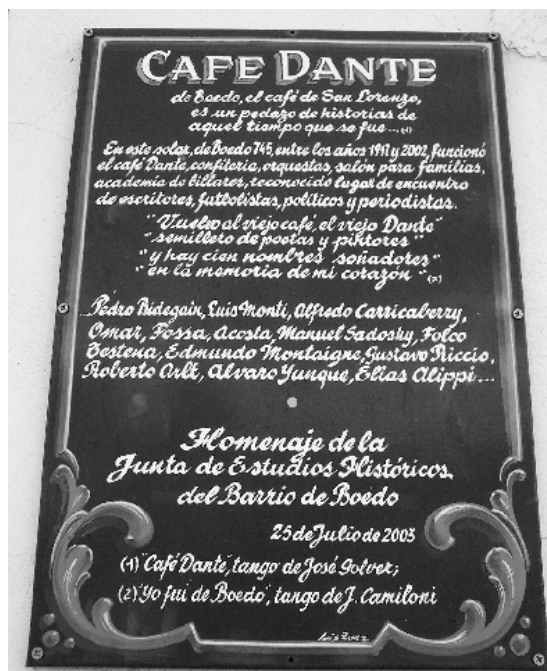 CAFE DANTE
de Boedo, el café de San Lorenzo,
es un pedazo de historias de
aquel tiempo que se fue... (1)
En este solar, de Boedo 745, entre los años 1917 y 2002, funcionó
el café Dante, confitería, orquestas, salón para familias,
academia de billares, reconocido lugar de encuentro
de escritores, futbolistas, políticos y periodistas.
"Vuelvo al viejo café, el viejo Dante"
"semillero de poetas y pintores"
"y hay cien nombres soñadores"
"en la memoria de mi corazón" (2)
Pedro Bidegain, Luis Monti, Alfredo Carricaberry,
Omar, Fossa, Acosta, Manuel Sadosky, Folco
Testena, Edmundo Montaigne, Gustavo Riccio,
Roberto Arlt, Alvaro Yunque, Elías Alippi...
Homenaje de la
Junta de Estudios Históricos
del Barrio de Boedo
25 de Julio de 2003
(1) "Café Dante", tango de José Golver;
(2) "Yo fui de Boedo", tango de J. Camiloni